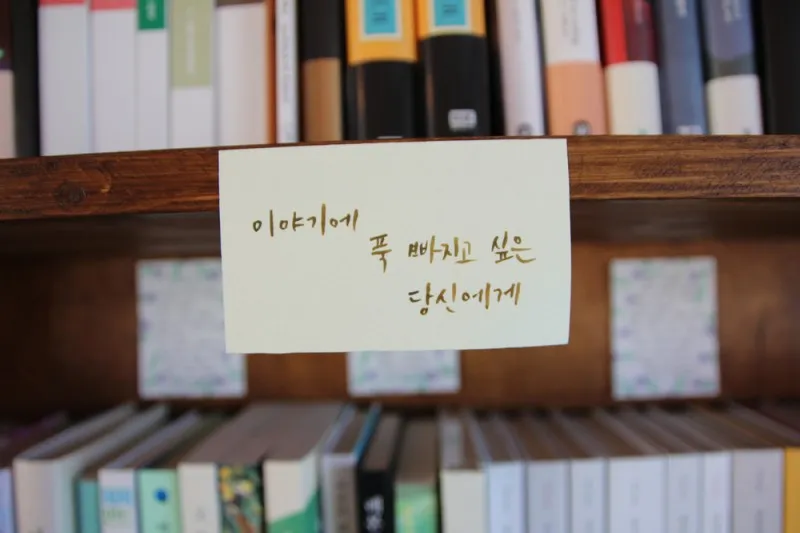 이야기에
푹 빠지고 싶은
당신에게